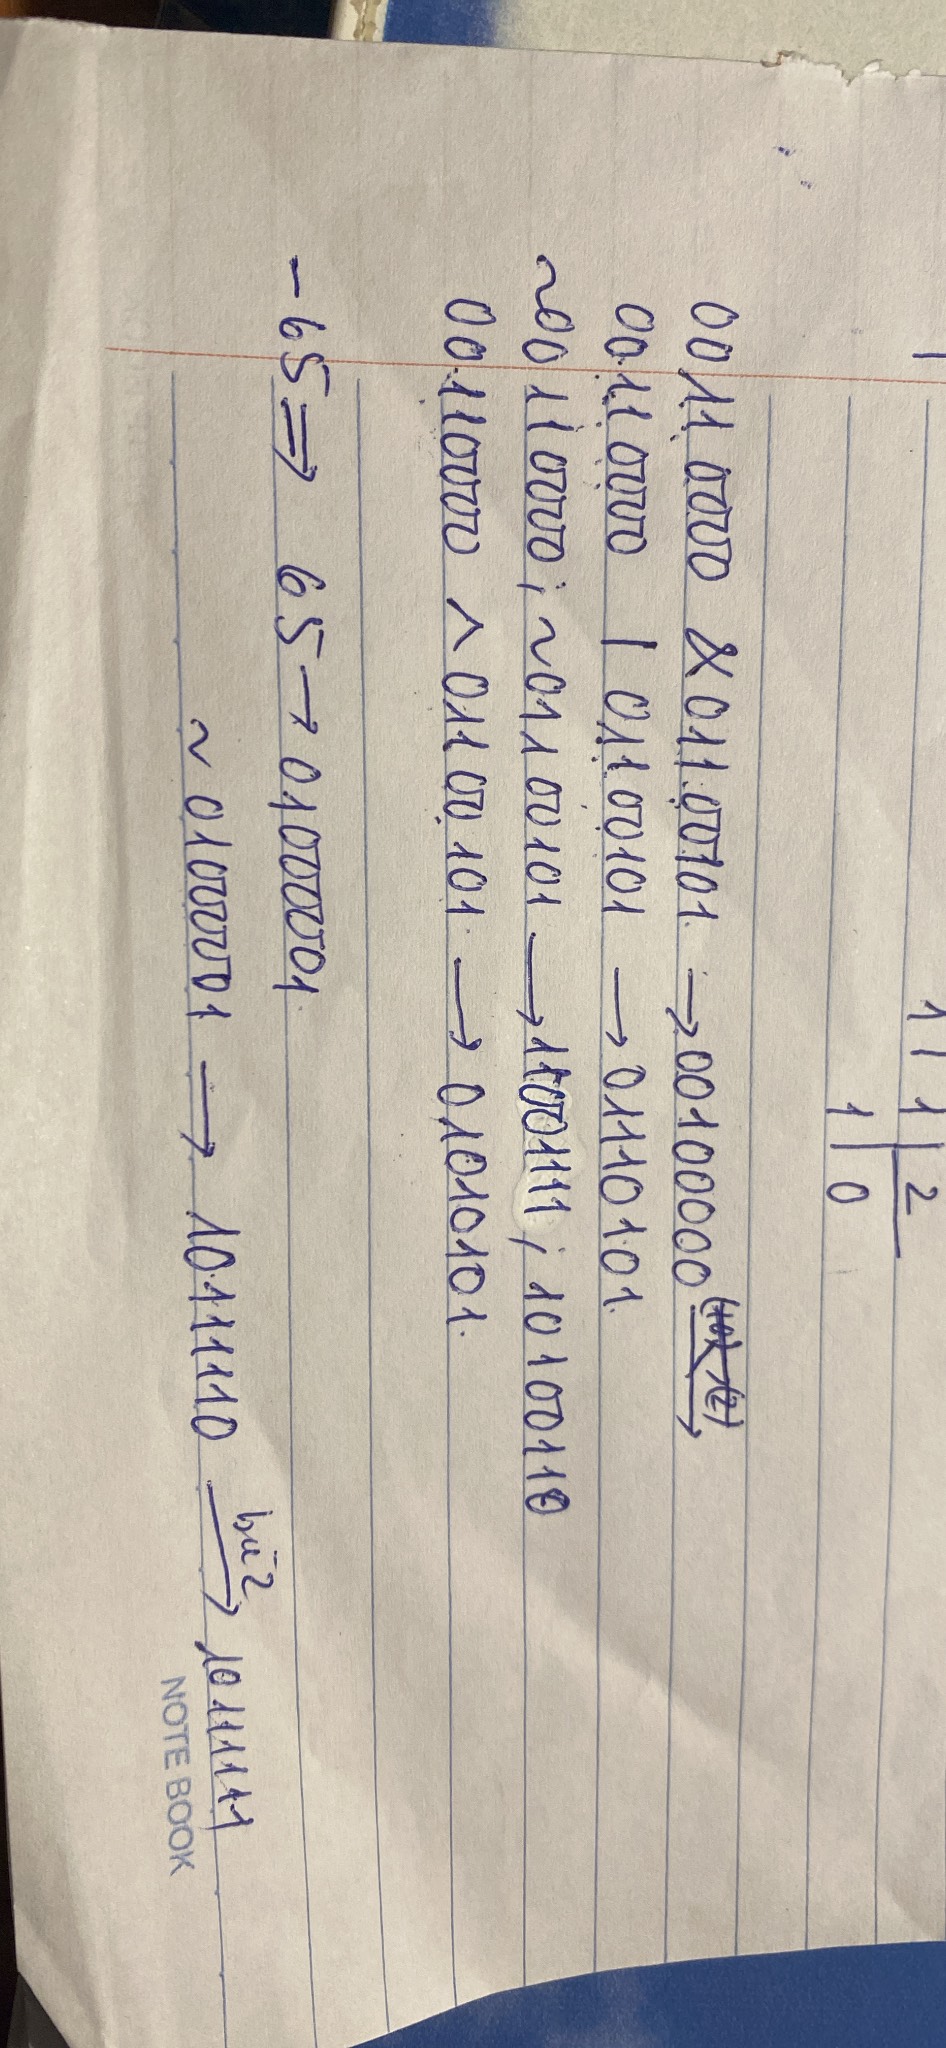 1 1 2
1 0
00110000 & 01100101 → 00100000 →
00110000 | 01100101 → 01110101
~00110000 ; ~01100101 → 11001111 ; 10100110
00110000 ^ 01100101 → 01010101
-65 ⇒ 65 → 01000001
~01000001 → 10111110 bù 2 → 10111111
NOTE BOOK